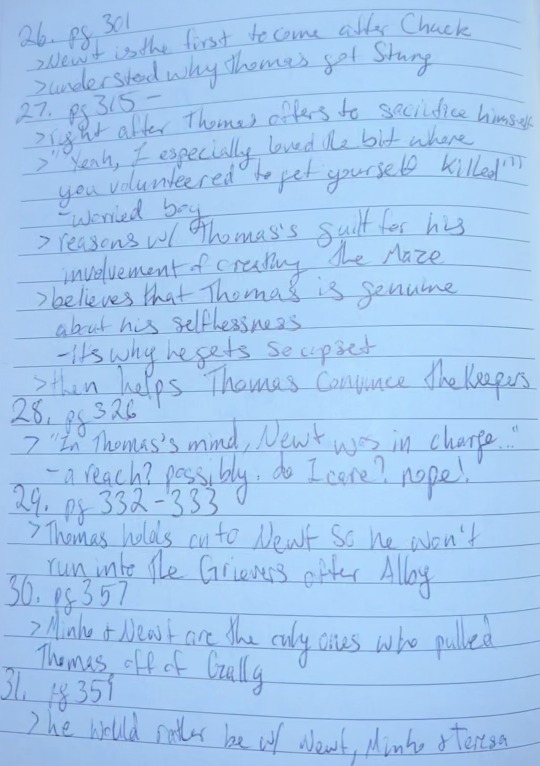 26. pg 301
>Newt is the first to come after Chuck
>understood why Thomas got Stung
27. pg 315 -
>right after Thomas offers to sacrifice himself
>"Yeah, I especially loved the bit where
you volunteered to get yourself killed"!!
-worried boy
>reasons w/ Thomas's guilt for his
involvement of creating the Maze
>believes that Thomas is genuine
about his selflessness
-Its why he gets so upset
>then helps Thomas Convince the Keepers
28. pg 326
> "In Thomas's mind, Newt was in charge..."
- a reach? possibly. do I care? nope!
29. pg 332-333
>Thomas holds onto Newt So he won't
run into the Grievers after Alby
30. pg 357
>Minho + Newt are the only ones who pulled
Thomas off of Gally
31. pg 359
>he would rather be w/ Newt, Minho + Teresa